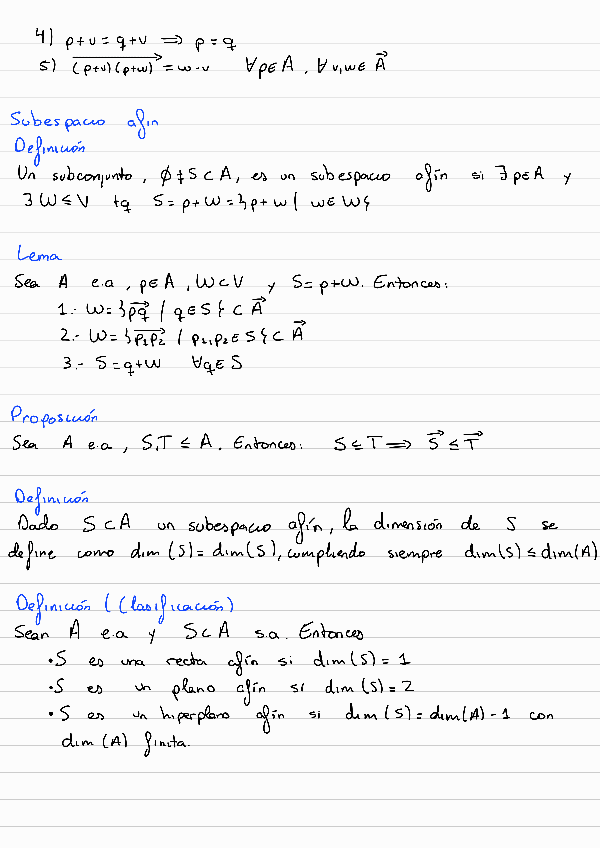 4) p+v = q+v ⟹ p = q
5) $\overrightarrow{(p+v)(p+w)}$ = w-v ∀p∈A, ∀v,w∈ $\vec{A}$
Subespacio afín
Definición
Un subconjunto, ∅ ≠ S ⊂ A, es un subespacio afín si ∃ p∈A y
∃ W ≤ V tq S = p+W = {p+w | w∈W}
Lema
Sea A e.a, p∈A, W⊂V y S = p+W. Entonces:
1.- W = {$\overrightarrow{pq}$ / q∈S} ⊂ $\vec{A}$
2.- W = {$\overrightarrow{p_1p_2}$ / p₁,p₂∈S} ⊂ $\vec{A}$
3.- S = q+W ∀q∈S
Proposición
Sea A e.a, S,T ≤ A. Entonces: S ≤ T ⟹ $\vec{S}$ ≤ $\vec{T}$
Definición
Dado S⊂A un subespacio afín, la dimensión de S se
define como dim (S) = dim(S), cumpliendo siempre dim(S) ≤ dim(A)
Definición ( Clasificación)
Sean A e.a y S⊂A s.a. Entonces
• S es una recta afín si dim(S) = 1
• S es un plano afín si dim(S) = 2
• S es un hiperplano afín si dim(S) = dim(A) - 1 con
dim (A) finita.